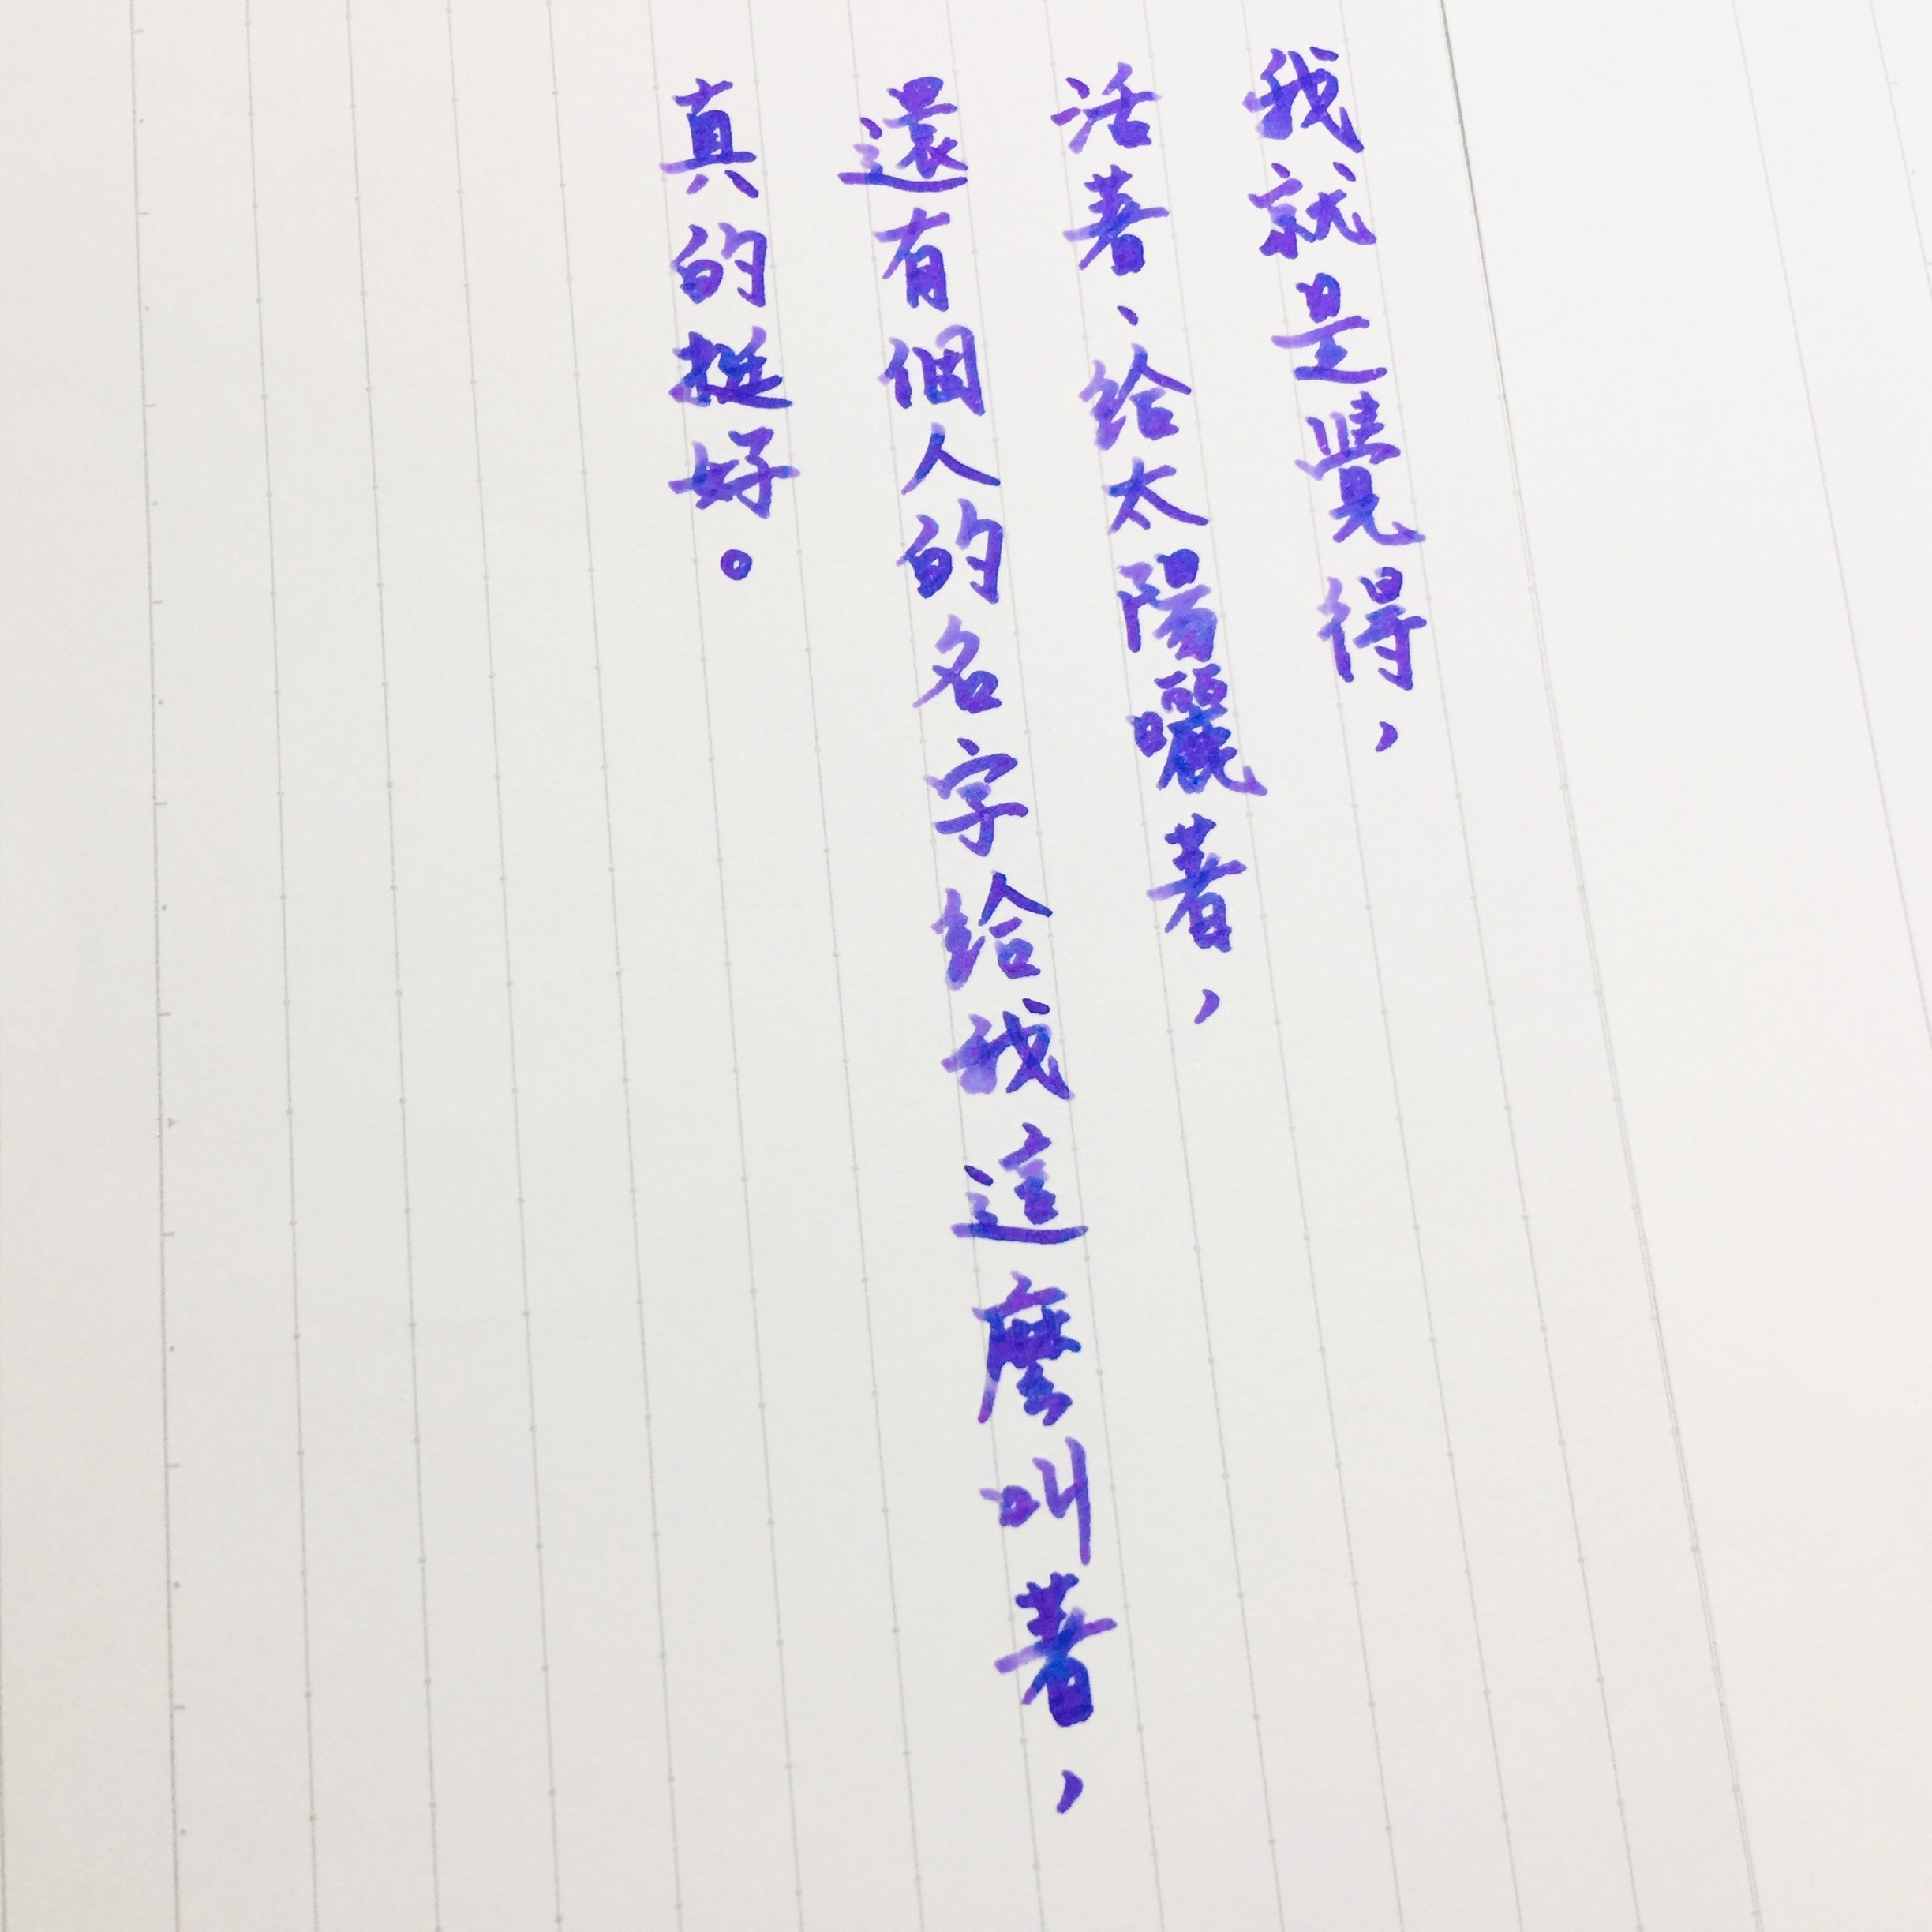 我就是覺得，
活著、給太陽曬著，
還有個人的名字給我這麼叫著，
真的挺好。